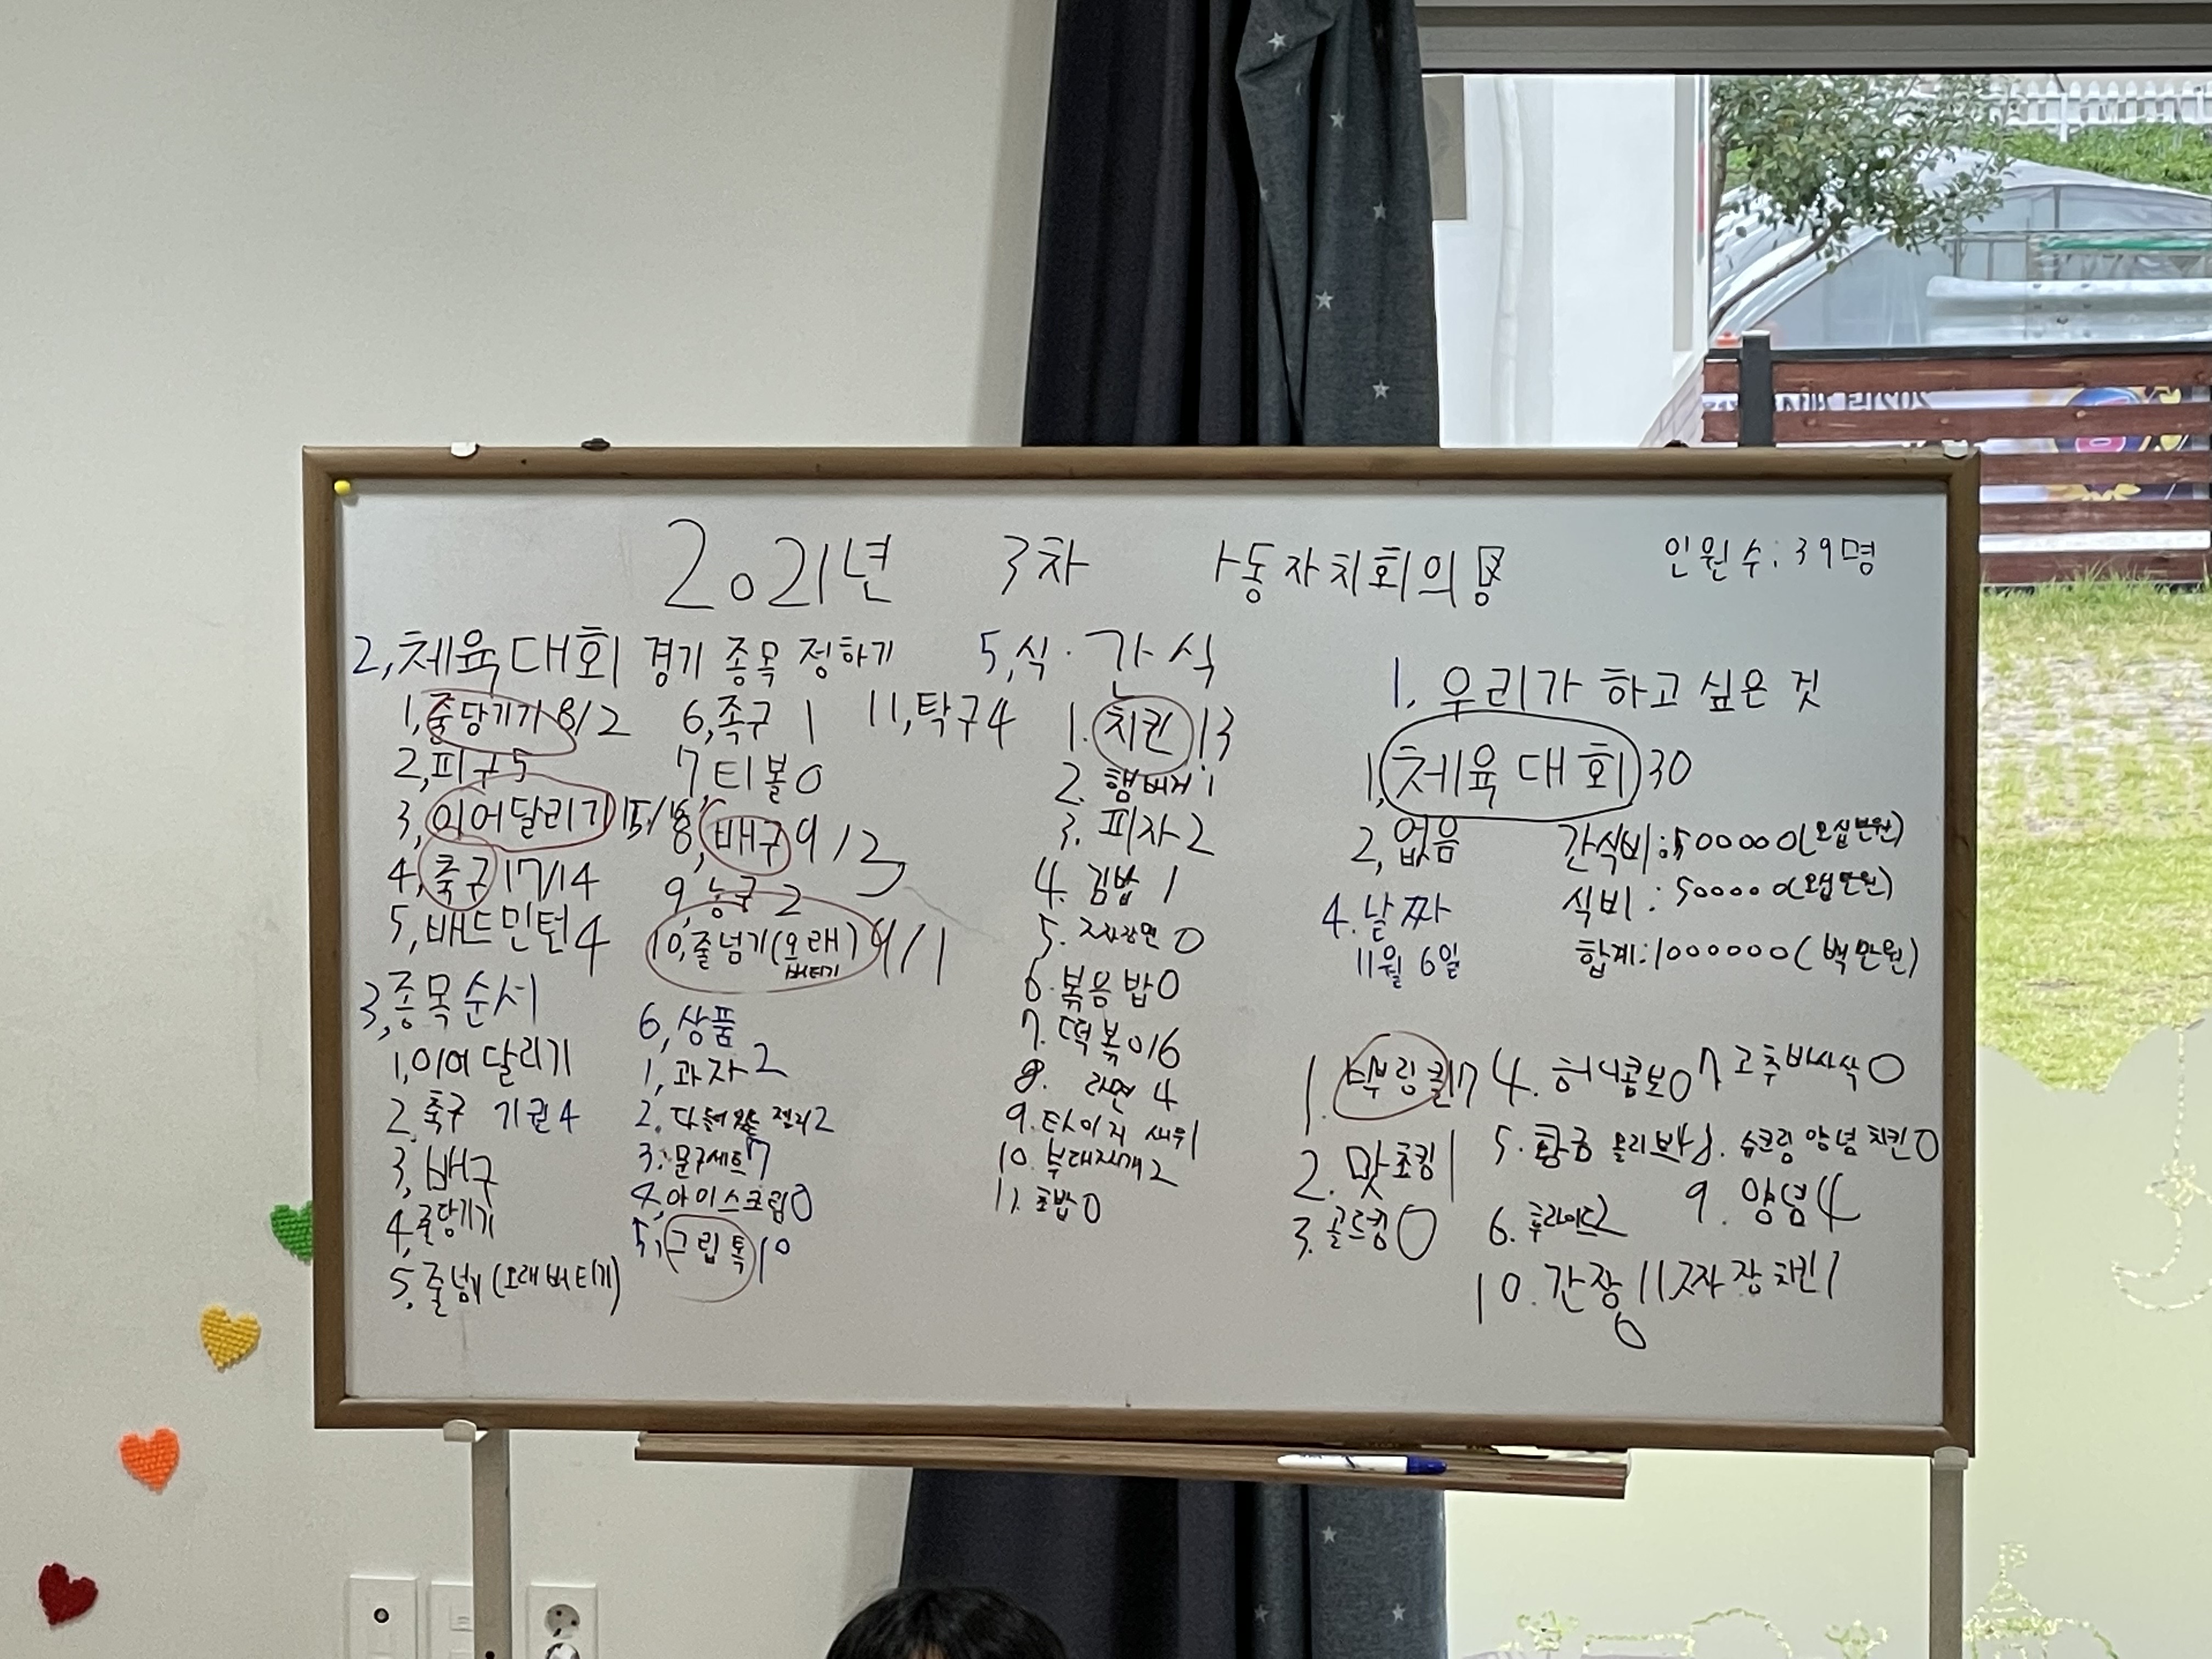 2021년 3차 아동자치회의
인원수: 39명
1. 우리가 하고 싶은 것
1, 체육대회 30
2, 없음
2, 체육대회 경기 종목 정하기
1, 줄당기기 8/2
2, 피구 5
3, 이어달리기 15/
4, 축구 17/14
5, 배드민턴 4
6, 족구 1
7, 티볼 0
8, 배구 9/3
9, 농구 2
10, 줄넘기(오래버티기) 9/1
11, 탁구 4
3, 종목순서
1, 이어달리기
2, 축구 기권4
3, 배구
4, 줄당기기
5, 줄넘기 (오래버티기)
4. 날짜
11월 6일
간식비: 500000(오십만원)
식비: 500000(오십만원)
합계: 1000000(백만원)
5, 식·간식
1. 치킨 13
2. 햄버거 1
3. 피자 2
4. 김밥 1
5. 짜장면 0
6. 볶음밥 0
7. 떡볶이 6
8. 라면 4
9. 타이거 새우 1
10. 부대찌개 2
11. 초밥 0
6, 상품
1, 과자 2
2. 다 들어있는 젤리 2
3. 문구세트 7
4, 아이스크림 0
5, 그립톡 10
1. 뿌링클 17
2. 맛초킹 1
3. 골드킹 0
4. 허니콤보 0
5. 황금올리브
6. 후라이드 2
7. 고추바사삭 0
8. 슈프림 양념치킨 0
9. 양념 4
10. 간장 0
11 짜장치킨 1